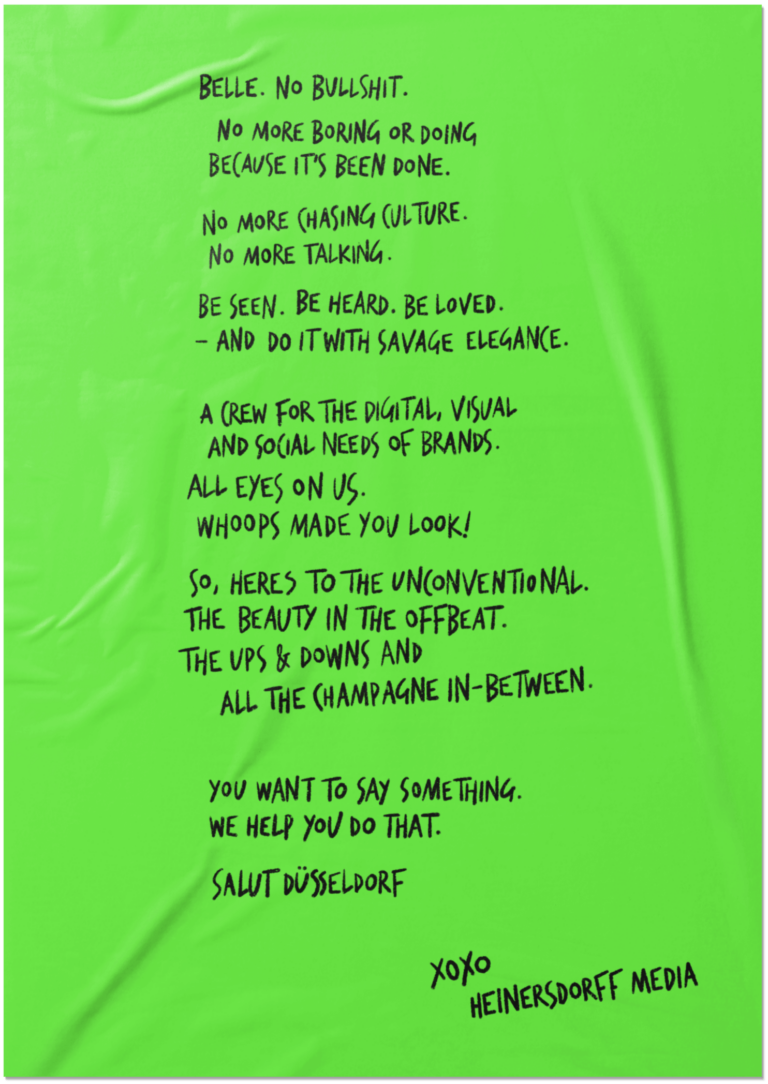 BELLE. NO BULLSHIT.
NO MORE BORING OR DOING
BECAUSE IT'S BEEN DONE.
NO MORE CHASING CULTURE.
NO MORE TALKING.
BE SEEN. BE HEARD. BE LOVED.
– AND DO IT WITH SAVAGE ELEGANCE.
A CREW FOR THE DIGITAL, VISUAL
AND SOCIAL NEEDS OF BRANDS.
ALL EYES ON US.
WHOOPS MADE YOU LOOK!
SO, HERES TO THE UNCONVENTIONAL.
THE BEAUTY IN THE OFFBEAT.
THE UPS & DOWNS AND
ALL THE CHAMPAGNE IN-BETWEEN.
YOU WANT TO SAY SOMETHING.
WE HELP YOU DO THAT.
SALUT DÜSSELDORF
XOXO
HEINERSDORFF MEDIA